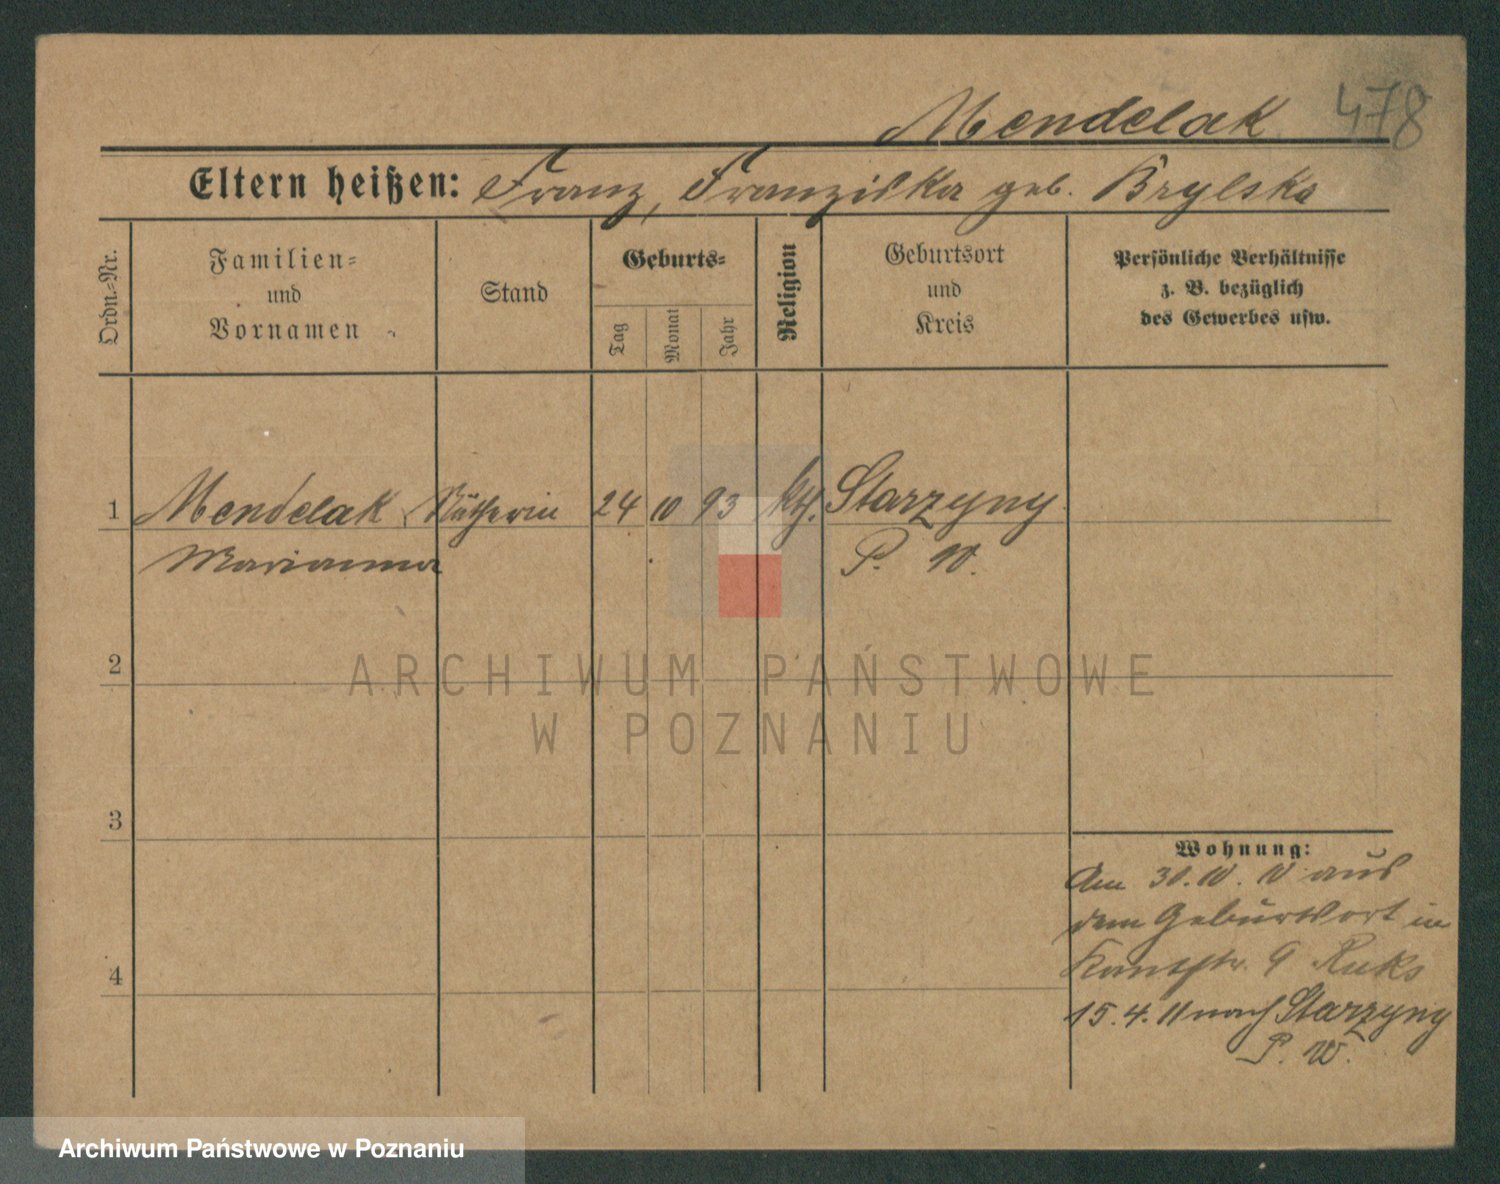 Mendelak 478
Eltern heißen: Franz, Franziska geb. Brylska
Ordn.-Nr.
Familien-
und
Vornamen
Stand
Geburts-
Tag
Monat
Jahr
Religion
Geburtsort
und
Kreis
Persönliche Verhältnisse
z. B. bezüglich
des Gewerbes usw.
1 Mendelak Nätherin 24 10 93 kth. Starzyny
Marianna P. W.
2
3
4
Wohnung:
Am 30.10.10 aus
dem Geburtsort in
Kantstr. 9
15.4.11 nach Starzyny
P. W.
ARCHIWUM PAŃSTWOWE
W POZNANIU
Archiwum Państwowe w Poznaniu